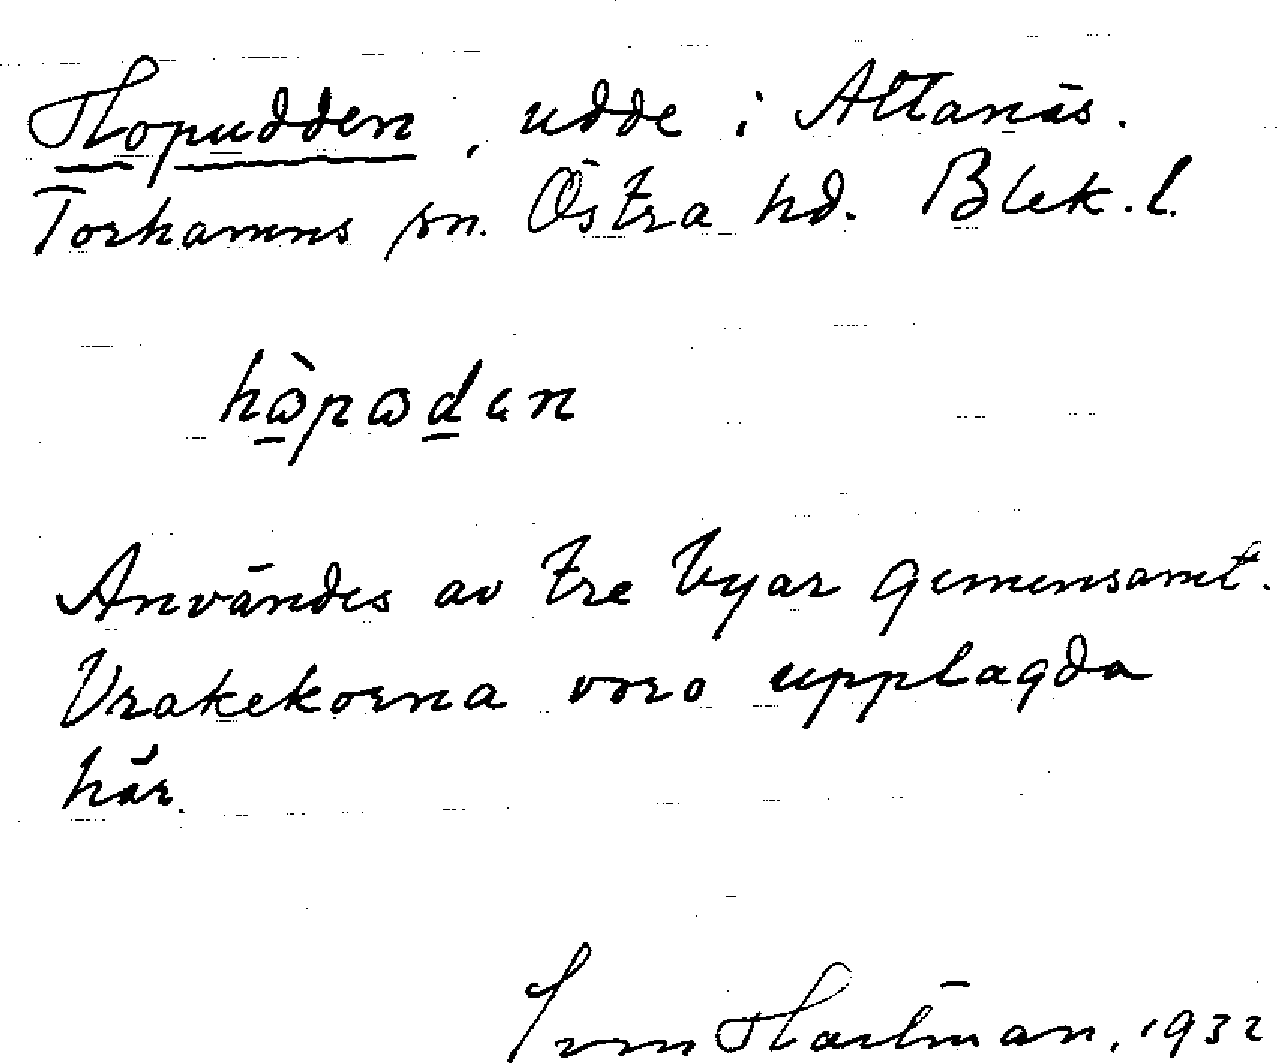 Hopudden, udde i Attanäs.
Torhamns sn. Östra hd. Blek. l.
hòpadan
Användes av tre byar gemensamt.
Vrakekorna voro upplagda
här.
Hartman, 1932